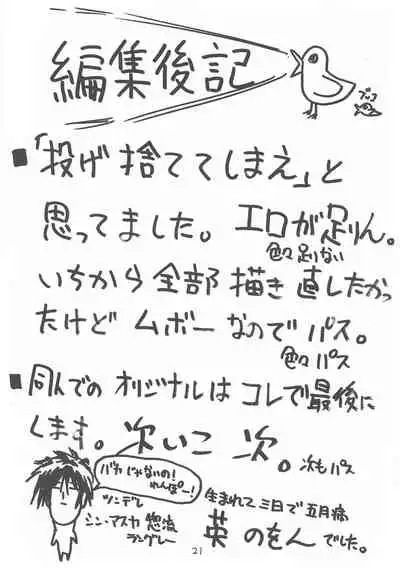 編集後記
■「投げ捨ててしまえ」と
思ってました。エロが足りん。
色々足りない
いちから全部描き直したかっ
たけどムボーなのでパス。
色々パス
■同人でのオリジナルはコレで最後に
します。次いこ次。次もパス
バカじゃないの!
れんぽー!
ツンデレ
シン・アスカ 惣流
ラングレー
生まれて三日で五月病
英のをんでした。
21